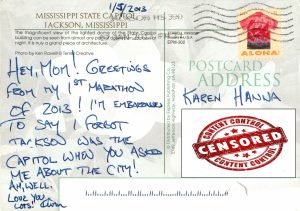 1/5/2013
MISSISSIPPI STATE CAPITOL
JACKSON, MISSISSIPPI
The magnificent view of the lighted dome of the State Capitol
building can be seen from almost any point
night. It is truly a grand piece of architecture.
Photo by Ken
HEY, MOM! GREETINGS
FROM MY 1ST MARATHON
OF 2013! I'M EMBARRASSED
TO SAY I FORGOT
JACKSON WAS THE
CAPITOL WHEN YOU ASKED
ME ABOUT THE CITY!
AH, WELL.
LOVE YOU
LOTS!
ALOHA
POSTCARD
ADDRESS
KAREN HANNA
CONTENT CONTROL
CENSORED
CONTENT CONTROL